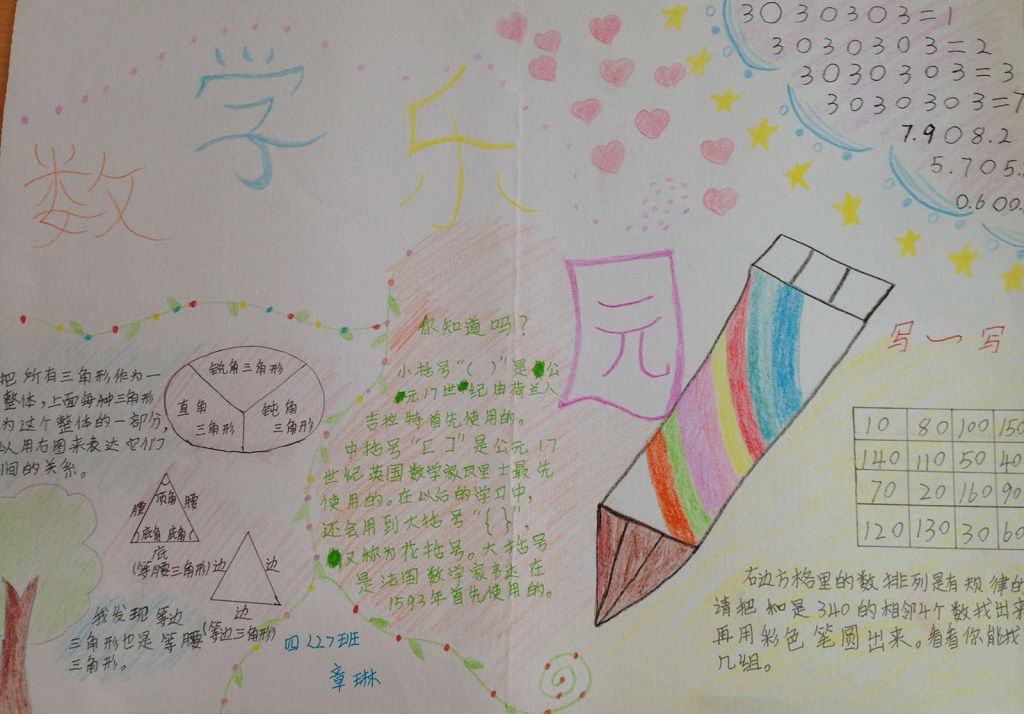 数学乐元
3○3○3○3=1
3○3○3○3=2
3○3○3○3=3
3○3○3○3=7
7.9○8.2
5.7○5.
0.6○0.
写一写
10 80 100 150
140 110 50 40
70 20 160 90
120 130 30 60
右边方格里的数排列是有规律的
请把和是340的相邻4个数找出来
再用彩色笔圈出来。看看你能找
几组。
你知道吗？
小括号“（ ）”是公
元17世纪由荷兰人
吉拉特首先使用的。
中括号“[ ]”是公元17
世纪英国数学家瓦里士最先
使用的。在以后的学习中，
还会用到大括号“{ }”，
又称为花括号。大括号
是法国数学家韦达在
1593年首先使用的。
把所有三角形作为一
整体，上面每种三角形
为这个整体的一部分，
以用右图来表达它们
间的关系。
锐角三角形
直角
三角形
钝角
三角形
顶角
腰
腰
底角
底角
底
(等腰三角形)
边
边
边
(等边三角形)
我发现等边
三角形也是等腰
三角形。
四227班
章琳